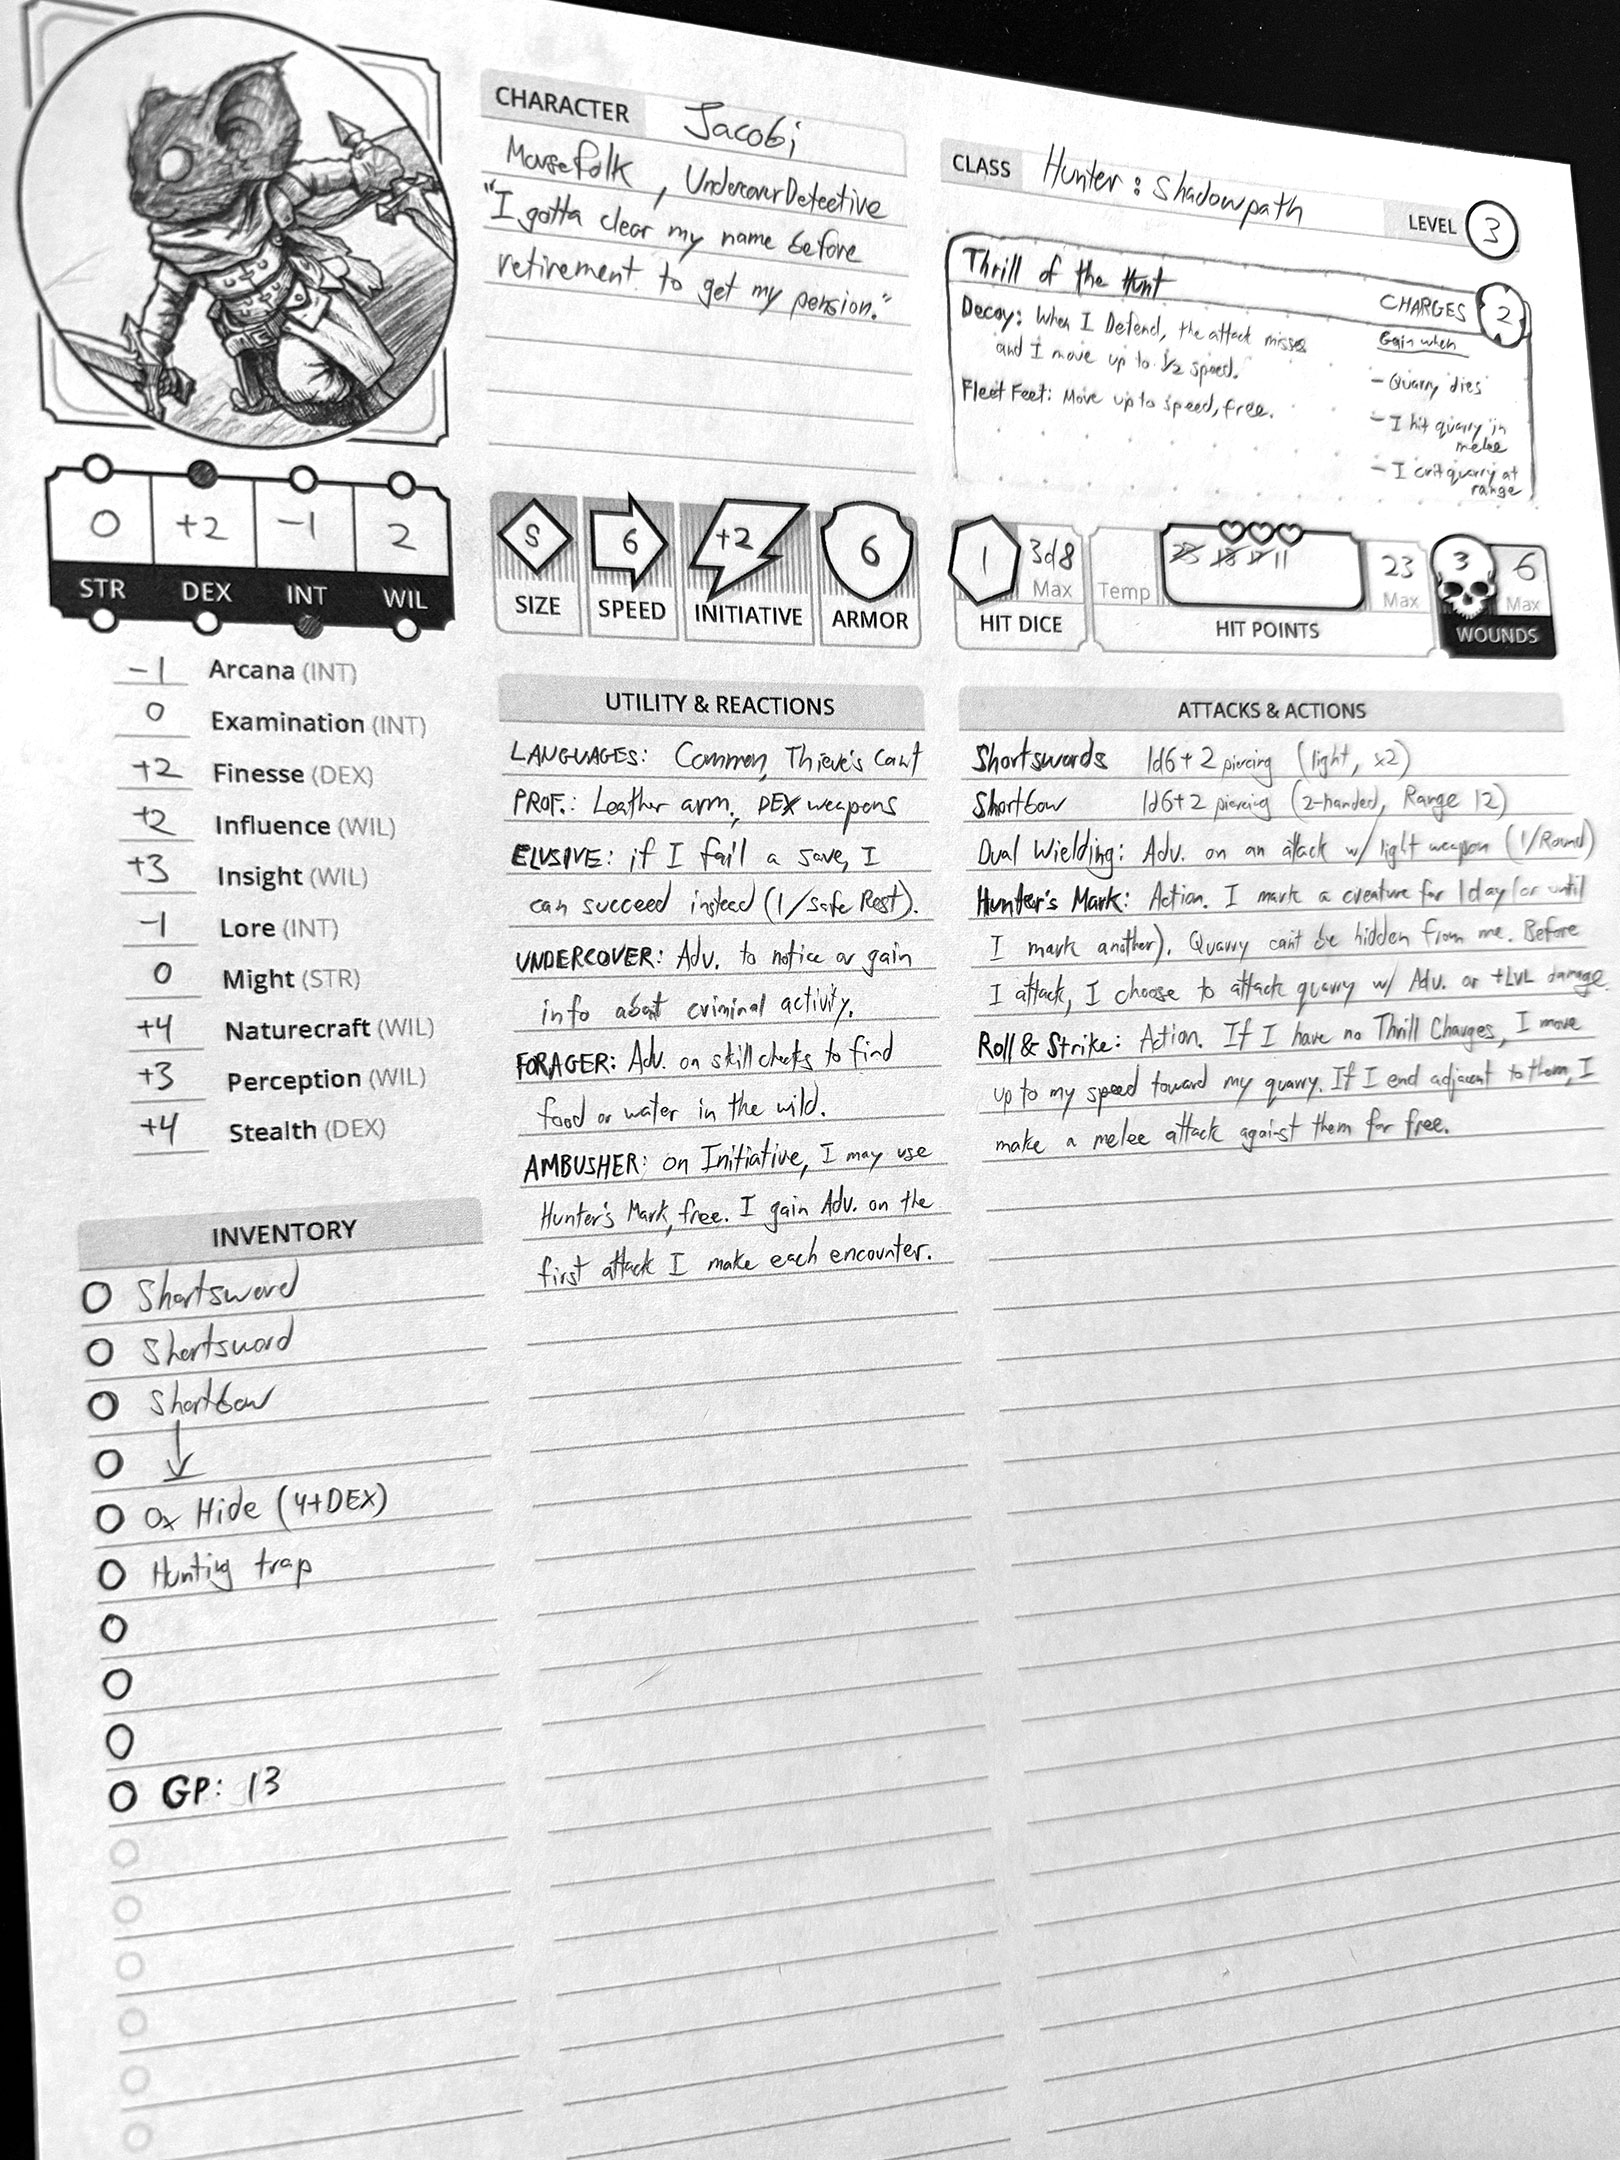 CHARACTER Jacobi
Mousefolk, Undercover Detective
"I gotta clear my name before
retirement to get my pension."
CLASS Hunter: Shadowpath
LEVEL 3
Thrill of the Hunt
CHARGES 2
Decoy: When I Defend, the attack misses
and I move up to 1/2 speed.
Fleet Feet: Move up to speed, free.
Gain when
- Quarry dies
- I hit quarry in
melee
- I crit quarry at
range
0 +2 -1 2
STR DEX INT WIL
S 6 +2 6
SIZE SPEED INITIATIVE ARMOR
1 3d8 Max
HIT DICE
Temp 23 18 17 11 23 Max
HIT POINTS
3 6 Max
WOUNDS
-1 Arcana (INT)
0 Examination (INT)
+2 Finesse (DEX)
+2 Influence (WIL)
+3 Insight (WIL)
-1 Lore (INT)
0 Might (STR)
+4 Naturecraft (WIL)
+3 Perception (WIL)
+4 Stealth (DEX)
INVENTORY
Shortsword
Shortsword
Shortbow
↓
Ox Hide (4+DEX)
Hunting trap
GP: 13
UTILITY & REACTIONS
LANGUAGES: Common, Thieve's Cant
PROF.: Leather arm., DEX weapons
ELUSIVE: if I fail a save, I
can succeed instead (1/Safe Rest).
UNDERCOVER: Adv. to notice or gain
info about criminal activity.
FORAGER: Adv. on skill checks to find
food or water in the wild.
AMBUSHER: on Initiative, I may use
Hunter's Mark, free. I gain Adv. on the
first attack I make each encounter.
ATTACKS & ACTIONS
Shortswords 1d6+2 piercing (light, x2)
Shortbow 1d6+2 piercing (2-handed, Range 12)
Dual Wielding: Adv. on an attack w/ light weapon (1/Round)
Hunter's Mark: Action. I mark a creature for 1 day (or until
I mark another). Quarry can't be hidden from me. Before
I attack, I choose to attack quarry w/ Adv. or +LVL damage.
Roll & Strike: Action. If I have no Thrill Charges, I move
up to my speed toward my quarry. If I end adjacent to them, I
make a melee attack against them for free.